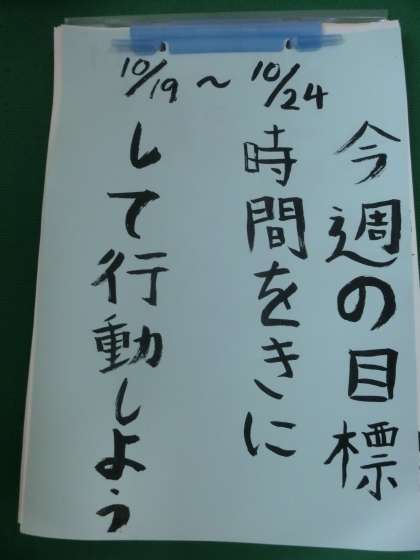 10/19～10/24
今週の目標
時間をきに
して行動しよう